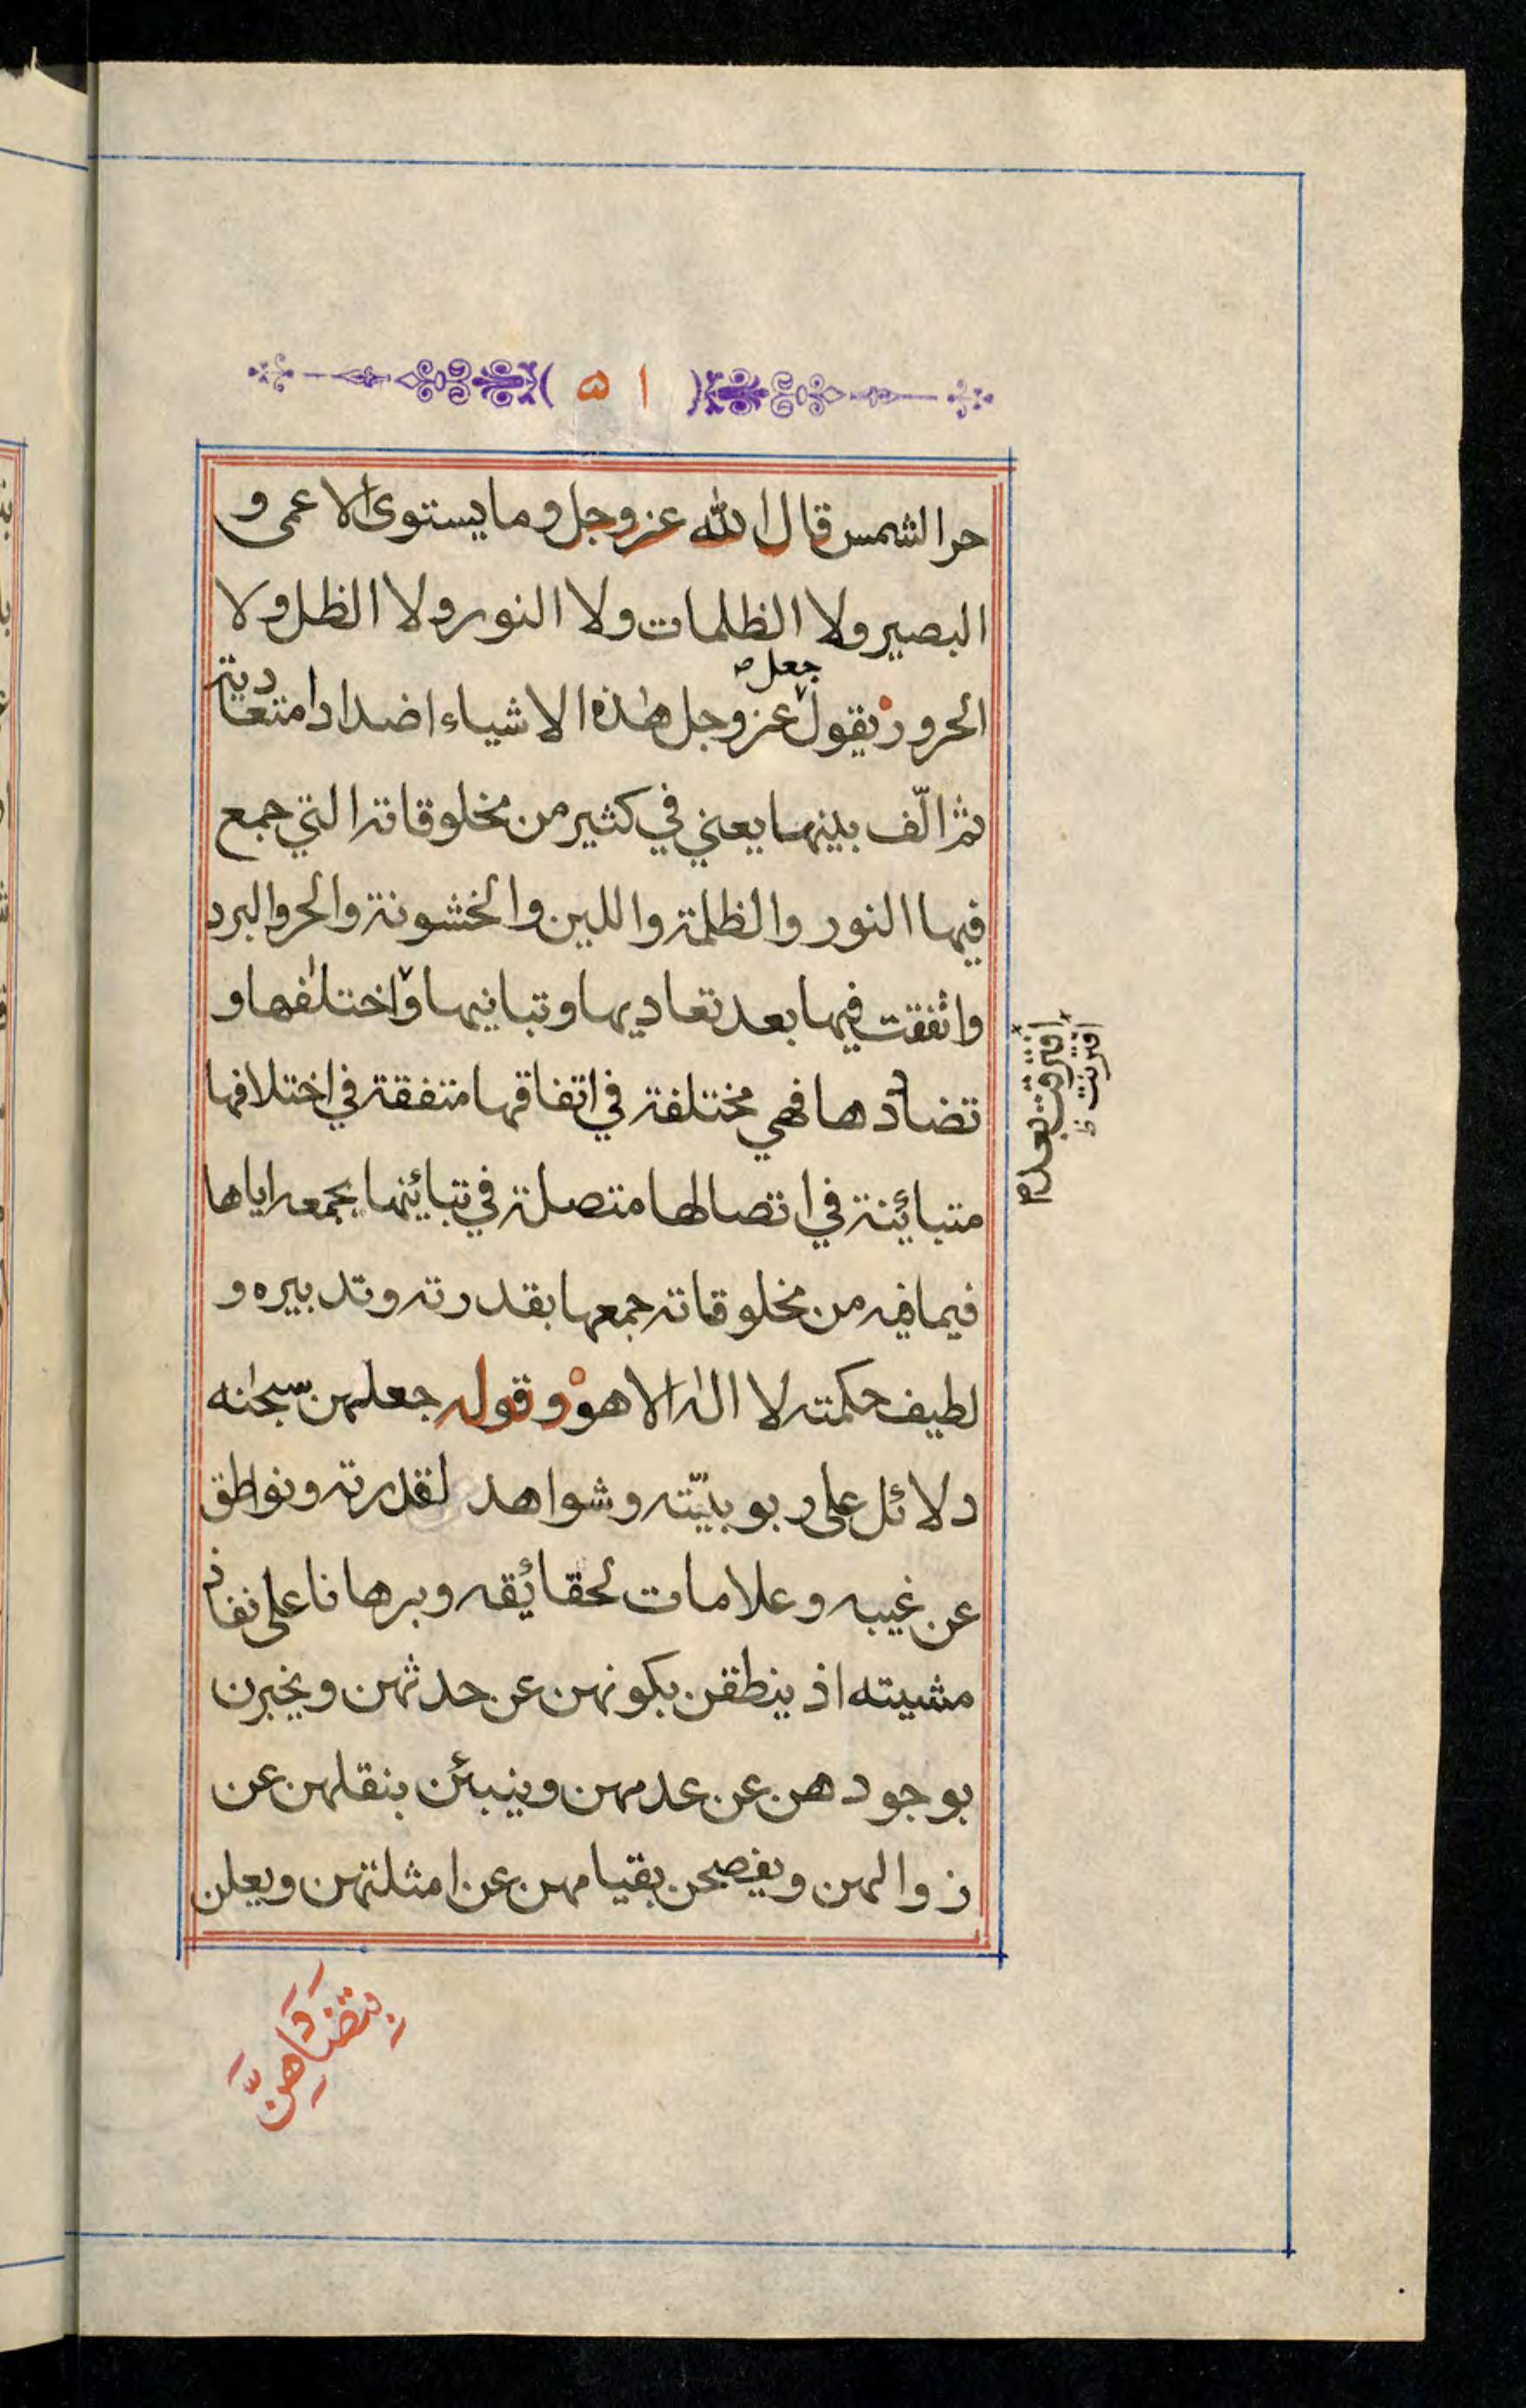 ۵۱
حر الشمس قال الله عز وجل وما يستوى الاعمى و
البصير ولا الظلمات ولا النور ولا الظل ولا
جعل صح
الحرور يقول عز وجل هذه الاشياء اضدادا متعادية
ثم الّف بينها يعني في كثير من مخلوقاته التي جمع
فيها النور والظلمة واللين والخشونة والحر والبرد
واتفقت فيها بعد تعاديها وتباينها واختلفها و
تضادها فهي مختلفة في اتفاقها متفقة في اختلافها
متبائنة في اتصالها متصلة في تبائنها بجمعه اياها
فيما فيه من مخلوقاته جمعها بقدرته وتدبيره و
لطيف حكمته لا اله الا هو وقوله جعلهن سبحنه
دلائل على ربوبيّته وشواهد لقدرته ونواطق
عن غيبه وعلامات لحقائقه وبرهانا على نفاذ
مشيته اذ ينطقن بكونهن عن حدثهن ويخبرن
بوجودهن عن عدمهن وينبئن بنقلهن عن
زوالهن ويفصحن بقيامهن عن امثلتهن ويعلن
افترقت بعد
اقترنت ظ
بِتَضَادِهِنَّ